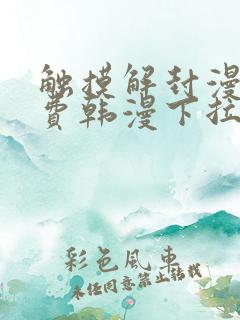 触摸解封漫
费韩漫下拉
彩色風車
未经同意禁止转载